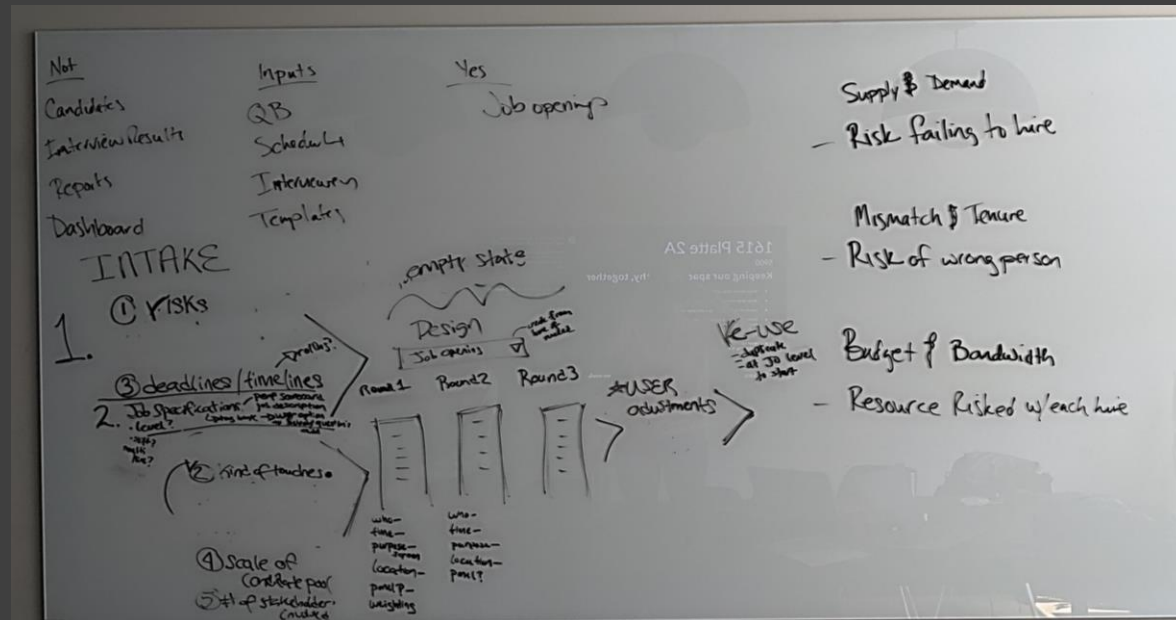 Not
Candidates
Interview Results
Reports
Dashboard
Inputs
QB
Schedule
Interviewers
Templates
Yes
Job openings
Supply & Demand
- Risk failing to hire
Mismatch & Tenure
- Risk of wrong person
Budget & Bandwidth
- Resource Risked w/each hire
INTAKE
1.
① risks
③ deadlines/timelines
2. Job Specifications
- level?
job description
② Kind of touches
④ Scale of
candidate pool
⑤ # of stakeholders
involved
empty state
Design
Job opening
Round 1
Round 2
Round 3
who-
time-
purpose-
location-
panel?-
weighting
who-
time-
purpose-
location-
panel?
*USER
adustments
Re-use
- duplicate
- at JO level
to start
1615 Platte 2A
Keeping our spac
thy, together